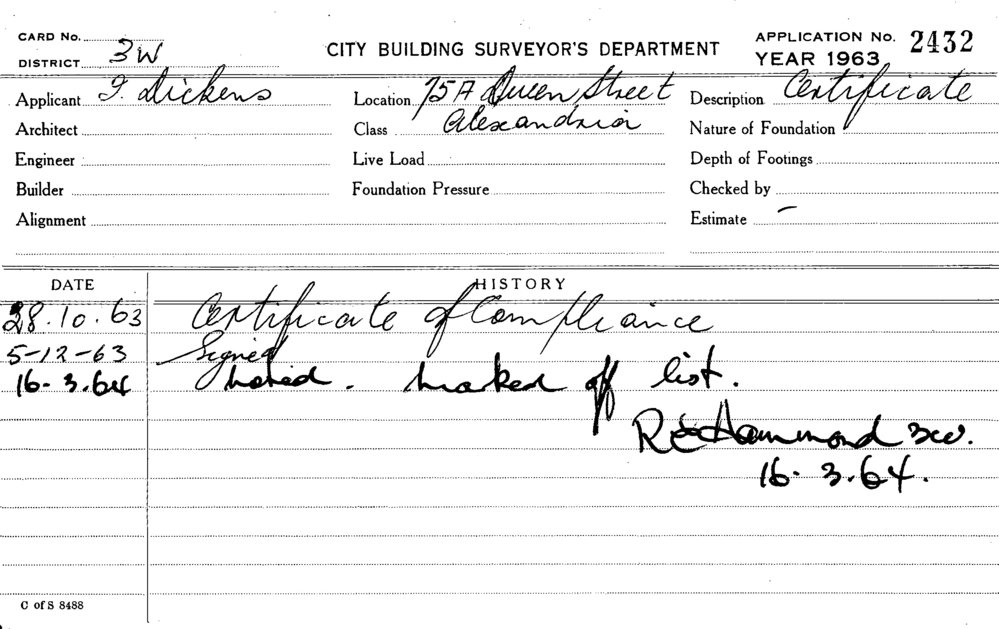 CARD No.
DISTRICT 3W
CITY BUILDING SURVEYOR'S DEPARTMENT
APPLICATION No. 2432
YEAR 1963
Applicant I. Dickens
Location 75A Queen Street
Description Certificate
Architect
Class Alexandria
Nature of Foundation
Engineer
Live Load
Depth of Footings
Builder
Foundation Pressure
Checked by
Alignment
Estimate –
DATE HISTORY
28.10.63 Certificate of Compliance
5-12-63 Signed
16.3.64 Noted. Marked off list.
R E Hammond 3W.
16.3.64.
C of S 8488